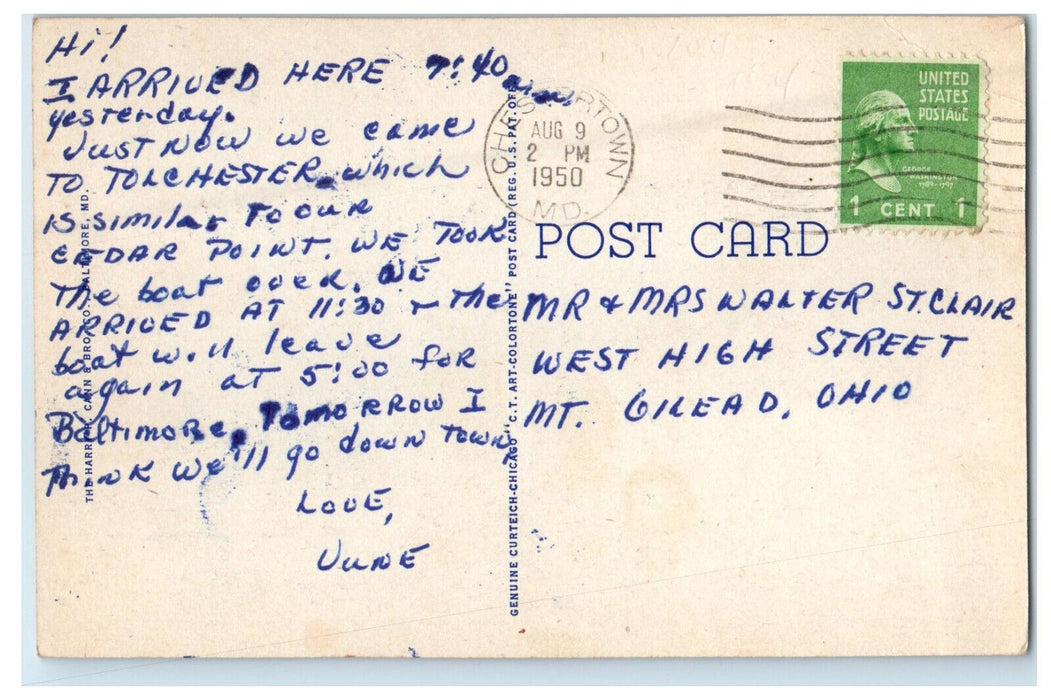 Hi!
I ARRIVED HERE 7:40 a.m.
yesterday.
JUST NOW WE came
TO TOLCHESTER which
IS similar TO OUR
CEDAR POINT. WE TOOK
The boat over. WE
ARRIVED AT 11:30 + The
boat will leave
again AT 5:00 for
Baltimore. TOMORROW I
Think we'll go down Town.
LOVE,
JUNE
THE HARRY P. CANN & BRO. CO., BALTIMORE, MD.
GENUINE CURTEICH-CHICAGO "C.T. ART-COLORTONE" POST CARD (REG. U.S. PAT. OFF.)
CHESTERTOWN
AUG 9
2 PM
1950
MD.
UNITED
STATES
POSTAGE
GEORGE
WASHINGTON
1789-1797
1 CENT 1
POST CARD
MR & MRS WALTER ST. CLAIR
WEST HIGH STREET
MT. GILEAD, OHIO